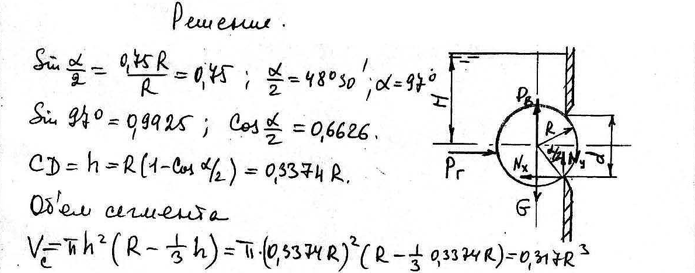 Решение.
Sin α/2 = 0,75R/R = 0,75 ; α/2 = 48°30' ; α = 97°
Sin 97° = 0,9925 ; Cos α/2 = 0,6626.
CD = h = R(1-Cos α/2) = 0,3374 R.
Об'ем сегмента
Vc = πh²(R - 1/3 h) = π·(0,3374R)²(R - 1/3 0,3374R) = 0,317R³
H
Pв
R
α/2
Pг
Nx
Ny
d
G